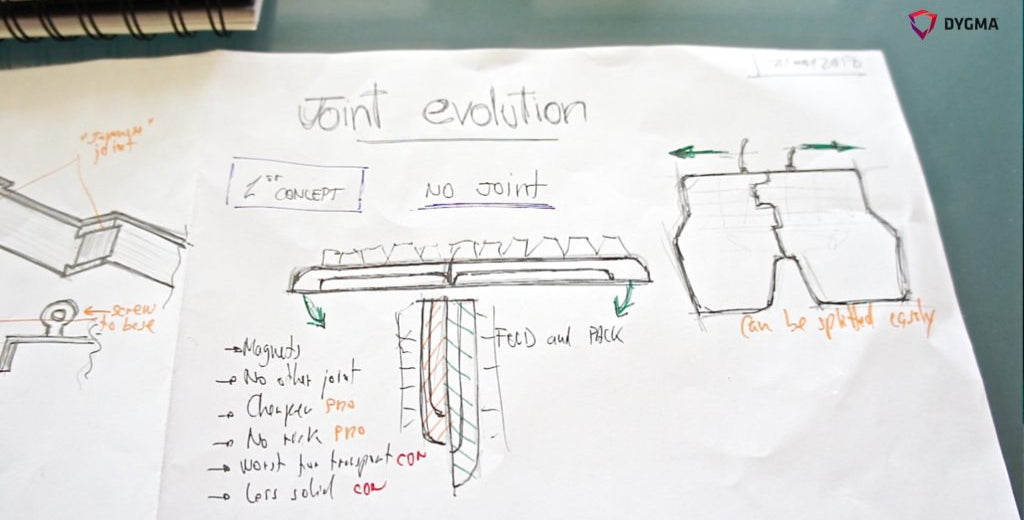 DYGMA
Joint evolution
"Japanese"
joint
1st CONCEPT
NO Joint
screw
to base
FOLD and PACK
can be splitted easily
Magnets
No other joint
Cheaper PRO
No risk PRO
Worst for transport CON
Less solid CON